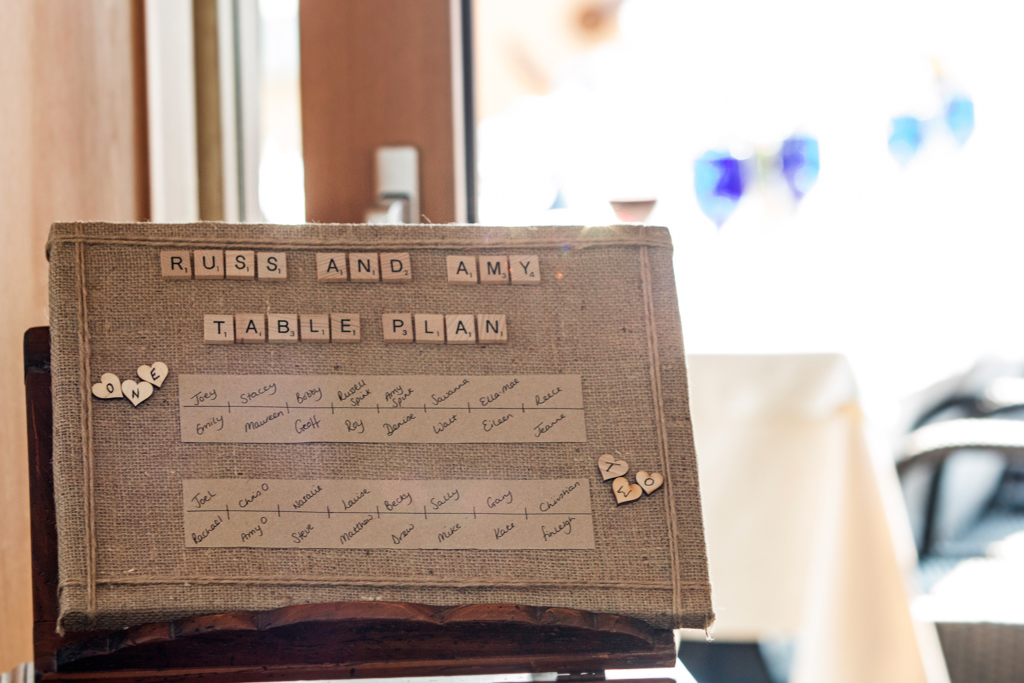 RUSS AND AMY
TABLE PLAN
ONE
Joey Stacey Bobby Russell Spink Amy Spink Savanna Ella Mae Reece
Emily Maureen Geoff Roy Denise Walt Eileen Jeanne
TWO
Joel Chris O Natalie Louise Becky Sally Gary Christian
Rachael Amy O Steve Matthew Drew Mike Kate